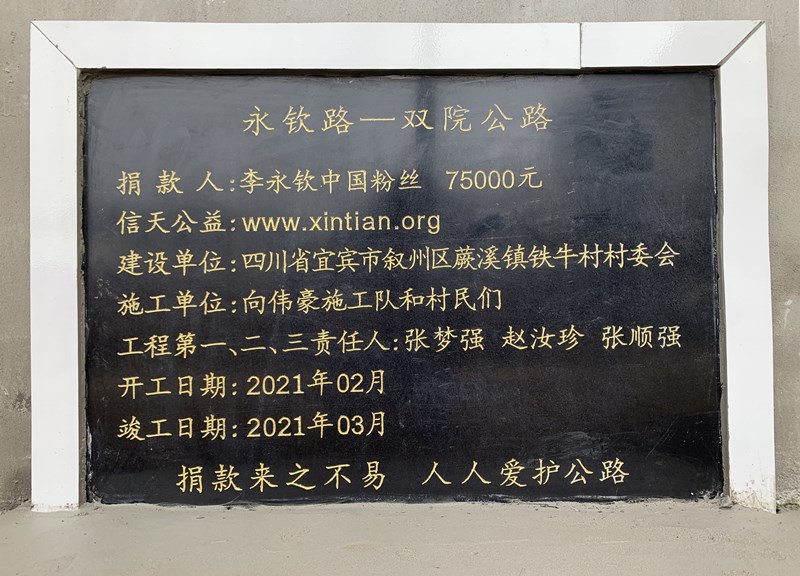 永钦路—双院公路
捐 款 人:李永钦中国粉丝 75000元
信天公益:www.xintian.org
建设单位:四川省宜宾市叙州区蕨溪镇铁牛村村委会
施工单位:向伟豪施工队和村民们
工程第一、二、三责任人:张梦强 赵汝珍 张顺强
开工日期:2021年02月
竣工日期:2021年03月
捐款来之不易 人人爱护公路